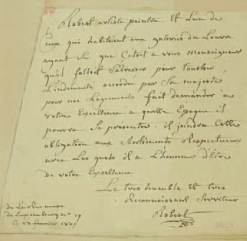 Robert artiste peintre Et l'un de
ceux qui habitaient aux galeries du Louvre
ayant sû que C'était a vous Monseigneur
qu'il fallait S'adresser pour toucher
L'indemnité accordée par Sa majesté
pour nos Logements fait demander au
votre Excellence a quelle Epoque il
pourra Se presenter. il joindra Cette
obligation aux Sentiments Respectueux
avec Les quels il a L'honneur d'être
de votre Excellence
Le très humble et très
reconnaissant Serviteur
Robert